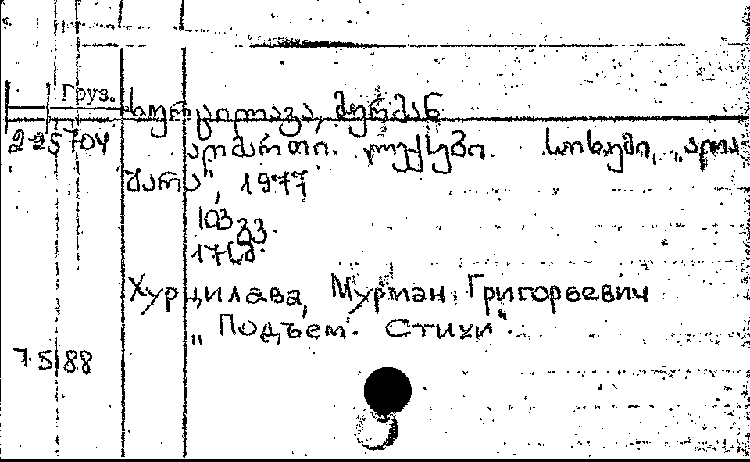 Груз.
ხურცილავა, მურმან
2-25704 აღმართი. ლექსები. სოხუმი, „ალა
შარა", 1977
103 გვ.
17 სმ.
Хурцилава, Мурман Григорьевич
„Подъем. Стихи".
7588